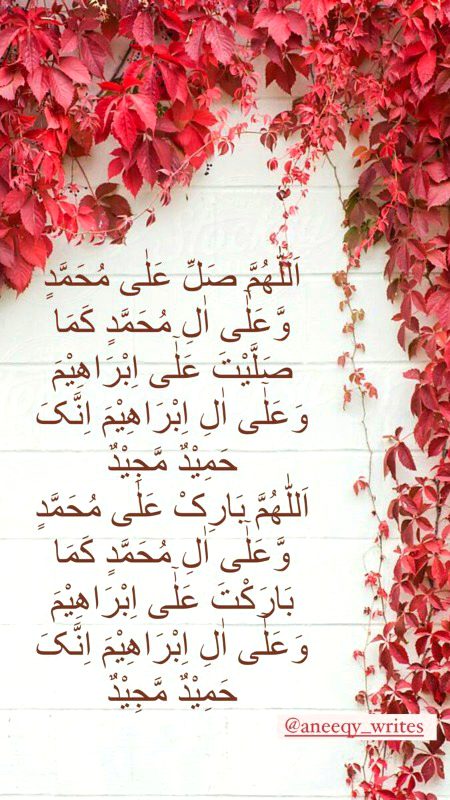 اَللّٰهُمَّ صَلِّ عَلٰى مُحَمَّدٍ
وَّ عَلٰٓى اٰلِ مُحَمَّدٍ كَمَا
صَلَّيْتَ عَلٰٓى اِبْرَاهِيْمَ
وَ عَلٰٓى اٰلِ اِبْرَاهِيْمَ اِنَّکَ
حَمِيْدٌ مَّجِيْدٌ
اَللّٰهُمَّ بَارِکْ عَلٰى مُحَمَّدٍ
وَّ عَلٰٓى اٰلِ مُحَمَّدٍ كَمَا
بَارَكْتَ عَلٰٓى اِبْرَاهِيْمَ
وَ عَلٰٓى اٰلِ اِبْرَاهِيْمَ اِنَّکَ
حَمِيْدٌ مَّجِيْدٌ
@aneeqy_writes